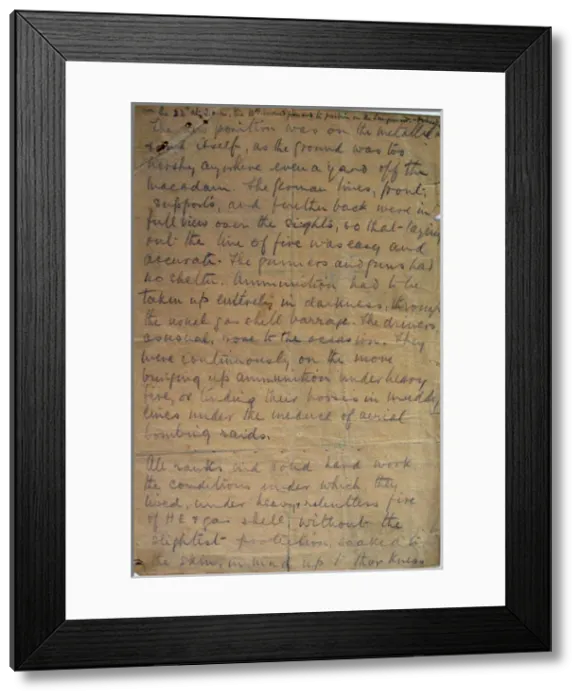 The position was on the metalled
itself, as the ground was too
marshy anywhere even a yard off the
macadam. The German lines, front,
supports, and further back were in
full view over the sights, so that laying
out the line of fire was easy and
accurate. The gunners and guns had
no shelter. Ammunition had to be
taken up entirely in darkness, through
the usual gas shell barrage. The drivers,
as usual, rose to the occasion. They
were continuously on the move
bringing up ammunition under heavy
fire, or tending their horses in muddy
lines under the menace of aerial
bombing raids.
All ranks hard work
the conditions under which they
lived, under heavy relentless fire
of HE & gas shell, without the
slightest protection, soaked to
the skin, in mud up to their knees